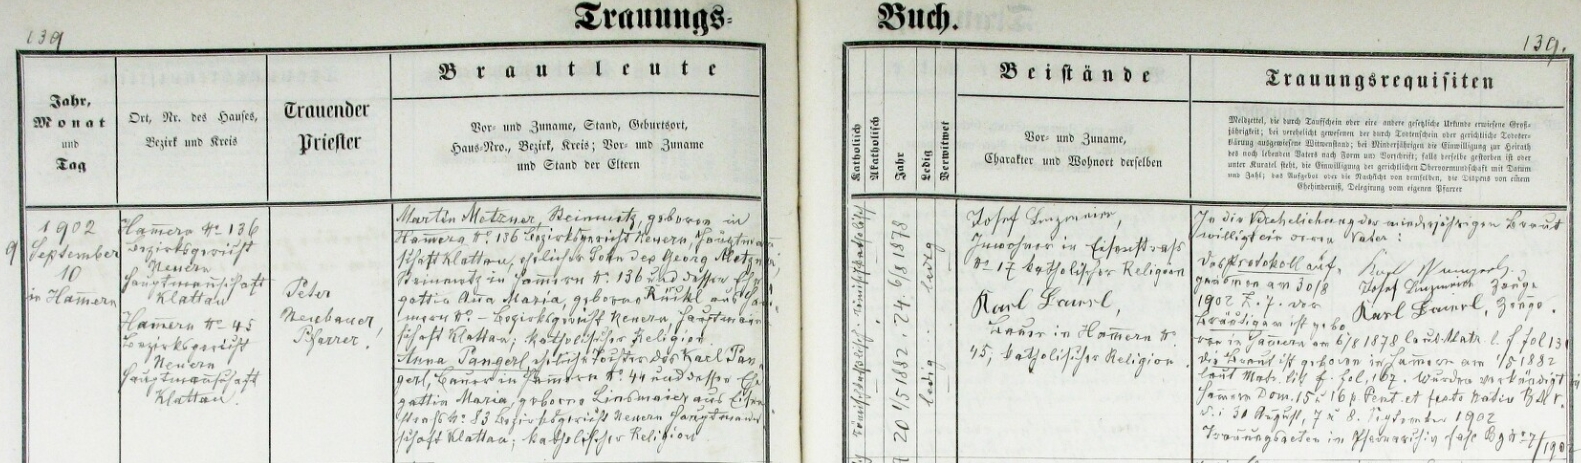 139
Trauungs-
Buch.
139.
Jahr,
Monat
und
Tag
Ort, Nr. des Hauses,
Bezirk und Kreis
Trauender
Priester
Brautleute
Vor- und Zuname, Stand, Geburtsort,
Haus-Nro., Bezirk, Kreis; Vor- und Zuname
und Stand der Eltern
Katholisch
Akatholisch
Jahr
Ledig
Verwitwet
Beistände
Vor- und Zuname,
Charakter und Wohnort derselben
Trauungsrequisiten
Meldzettel, die durch Taufschein oder eine andere gesetzliche Urkunde erwiesene Groß-
jährigkeit; bei verehelicht gewesenen der durch Todtenschein oder gerichtliche Todeser-
klärung ausgewiesene Witwenstand; bei Minderjährigen die Einwilligung zur Heirath
des noch lebenden Vaters nach Form und Vorschrift; falls derselbe gestorben ist oder
unter Kuratel steht, die Einwilligung der gerichtlichen Obervormundschaft mit Datum
und Zahl; das Aufgebot oder die Nachsicht von demselben, die Dispens von einem
Ehehinderniß, Delegirung vom eigenen Pfarrer
1902
9 September
10
in Hammern
Hammern Nr. 136
Bezirksgericht
Neuern
Hauptmannschaft
Klattau
Hammern Nr. 45
Bezirksgericht
Neuern
Hauptmannschaft
Klattau.
Peter
Neubauer,
Pfarrer.
Martin Metzner, Steinmetz, geboren in
Hammern Nr. 136 Bezirksgericht Neuern, Hauptmann-
schaft Klattau, ehelicher Sohn des Georg Metzner,
Steinmetz in Hammern Nr. 136 und dessen Ehe-
gattin Anna Maria, geborne Rückl aus Ham-
mern Nr. – Bezirksgericht Neuern Hauptmann-
schaft Klattau; katholischer Religion.
Anna Pangerl, eheliche Tochter des Karl Pan-
gerl, Bauer in Hammern Nr. 44 und dessen Ehe-
gattin Maria, geborne Linsmaier aus Eisen-
straß Nr. 83 Bezirksgericht Neuern Hauptmann-
schaft Klattau; katholischer Religion
römischkatholisch
römischkatholisch
20 1/5 1882
24. 6/8 1878
ledig
ledig
Josef
Inwohner in Eisenstraß
Nr. 17 katholischer Religion
Karl Bauerl,
Bauer in Hammern Nr.
45, katholischer Religion.
In die Verehelichung der minderjährigen Braut
williget ein deren Vater:
Das Protokoll auf-
genommen am 30/8
1902 Z. 7. Der
Bräutigam ist gebo
Karl Pangerl.
Josef Zeuge
Karl Bauerl, Zeuge.
ren in Hammern am 6/8 1878 laut Matr. l. f. fol 13
Die Braut ist geboren in Hammern am 1/5 1882
laut Matr. lit. f. fol. 167. Wurden verkündigt in
Hammern Dom. 15 u 16 p Pent. et festo Nativ B M V.
d. i. 31 August, 7 u 8. September 1902
Trauungsakten in Pfarrarchiv fasc 7/1902